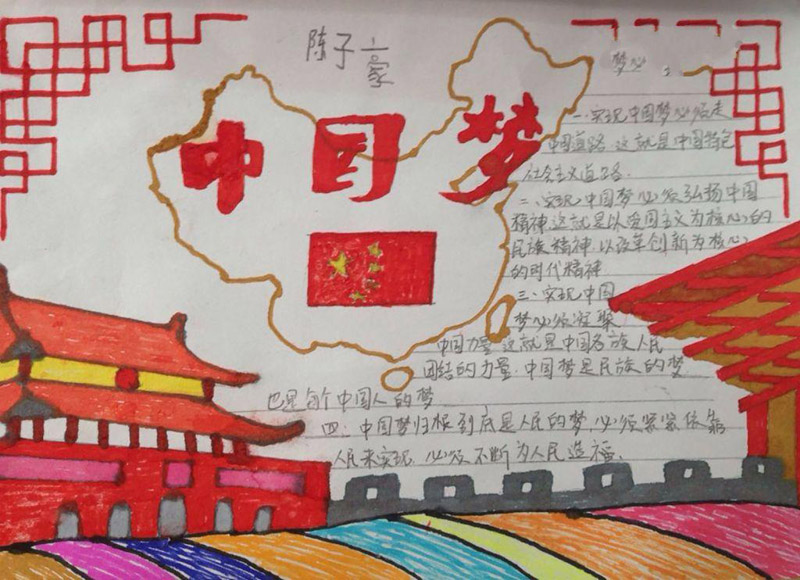 陈子豪
中国梦
一、实现中国梦必须走
中国道路.这就是中国特色
社会主义道路.
二、实现中国梦必须弘扬中国
精神.这就是以爱国主义为核心的
民族精神.以改革创新为核心
的时代精神
三、实现中国
梦必须凝聚
中国力量.这就是中国各族人民
团结的力量.中国梦是民族的梦.
也是每个中国人的梦.
四.中国梦归根到底是人民的梦.必须紧紧依靠
人民来实现.必须不断为人民造福.